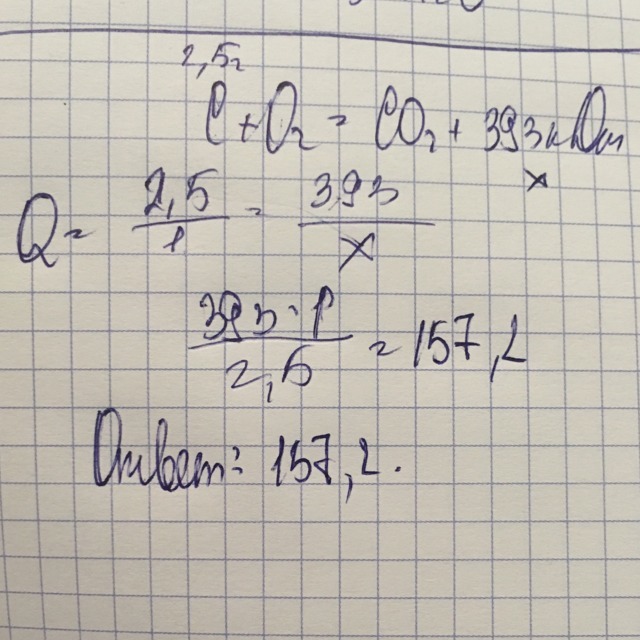 2,5г
C + O₂ = CO₂ + 393кДж
x
Q = 2,5/1 = 393/x
393·1/2,5 = 157,2
Ответ: 157,2.